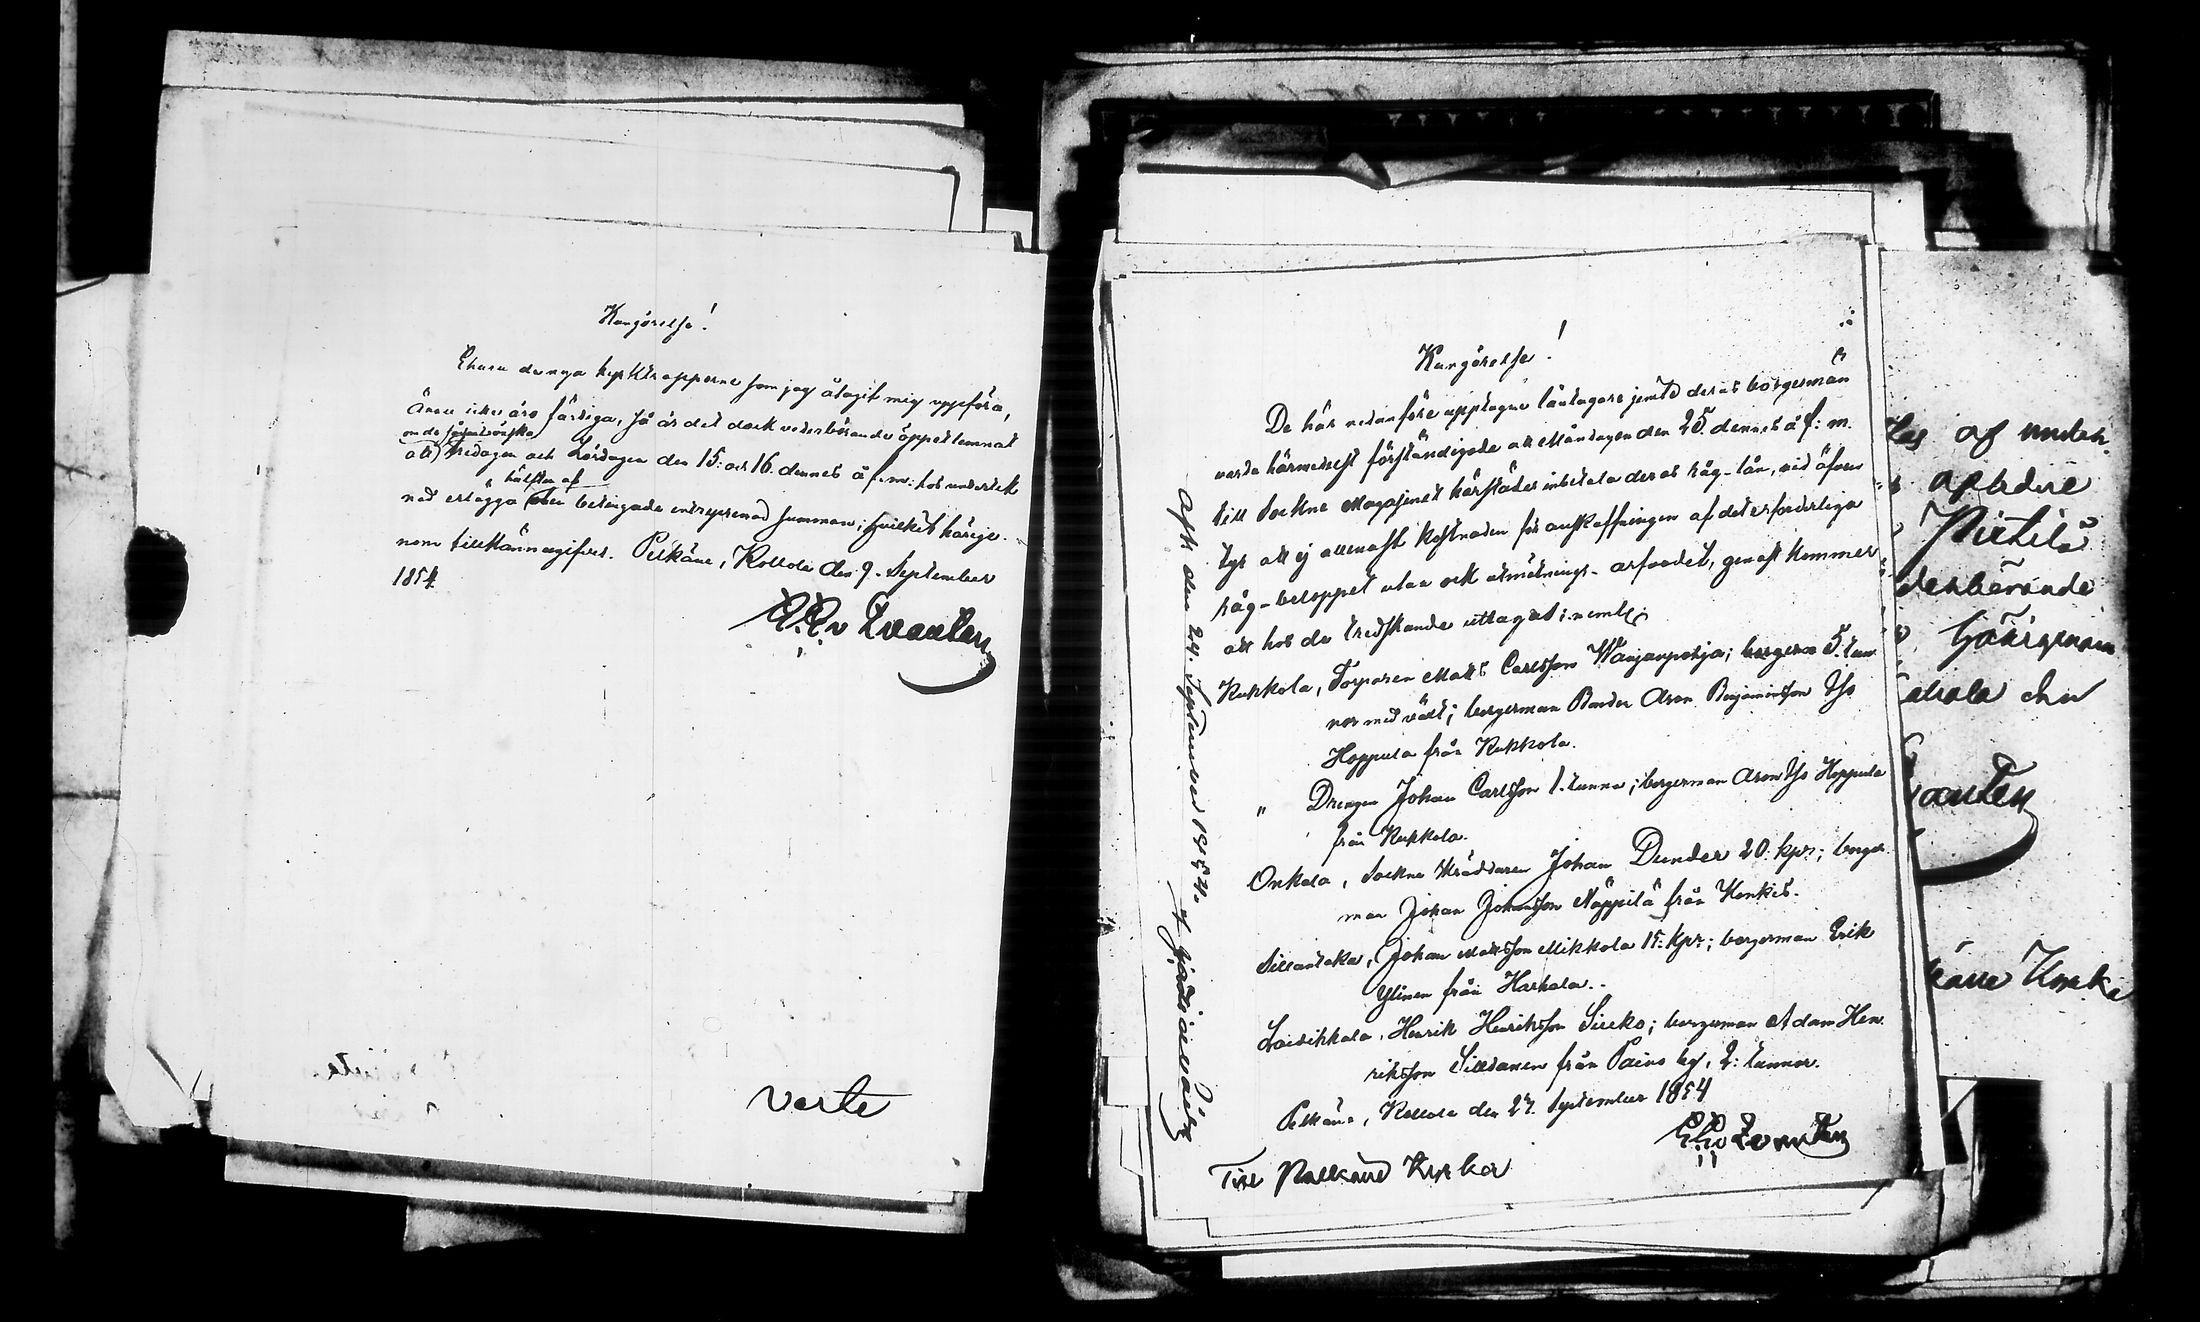 Kungörelse!
Ehuru de nya kyrktrapporne som jag åtagit mig uppföra,
ännu icke äro färdiga, så är det dock vederbörande öppet lemnat
om de så önska
att Fredagen och Lördagen den 15: och 16. dennes å f. m. hos underteck
hälften af
nad erlägga den betingade entreprenad summan; hvilket härige-
nom tillkännagifves. Pelkäne, Kollola den 9. September
1854
E. G. v Qvanten
Verte
Kungörelse!
De här nedanföre upptagne låntagare jemte deras borgesmän
varda härmedelst förständigade att Måndagen den 25. dennes å f: m.
till Sockne Magasinet härstädes inbetala deras råg-lån, vid äfven
tyr att ej allenast kostnaden för anskaffningen af det erforderliga
råg-beloppet utan ock utmätnings-arfvodet, genast kommer
att hos de tredskande uttagas; neml:
Kukkola, Torparen Matts Carlsson Wanjanpohja; 5. tun
nor med växt; borgesman Bonden Aron Benjaminsson Ths
Hoppula från Kukkola.
" Drengen Johan Carlsson 1. tunna; borgesman Aron Ths Hoppula
från Kukkola.
Onkala, Sockne Skräddaren Johan Dunder 20. kpr; borges-
man Johan Johansson Näppilä från Kankis.
Sillantaka, Johan Mattsson Mikkola 15. kpr; borgesman Erik
Ylinen från Harhala.
Laidikkala, Henrik Henriksson Sireko; borgesman Adam Hen
riksson Silldanen från Paino by, 2: tunnor.
Pelkäne, Kollola den 27. September 1854
E. G. v Qvanten
Till Pälkäne Kyrka
den 24. September 1854.
las af undert
Pietilä
derbörande
härigenom
den
Qvanten
käne Kyrka